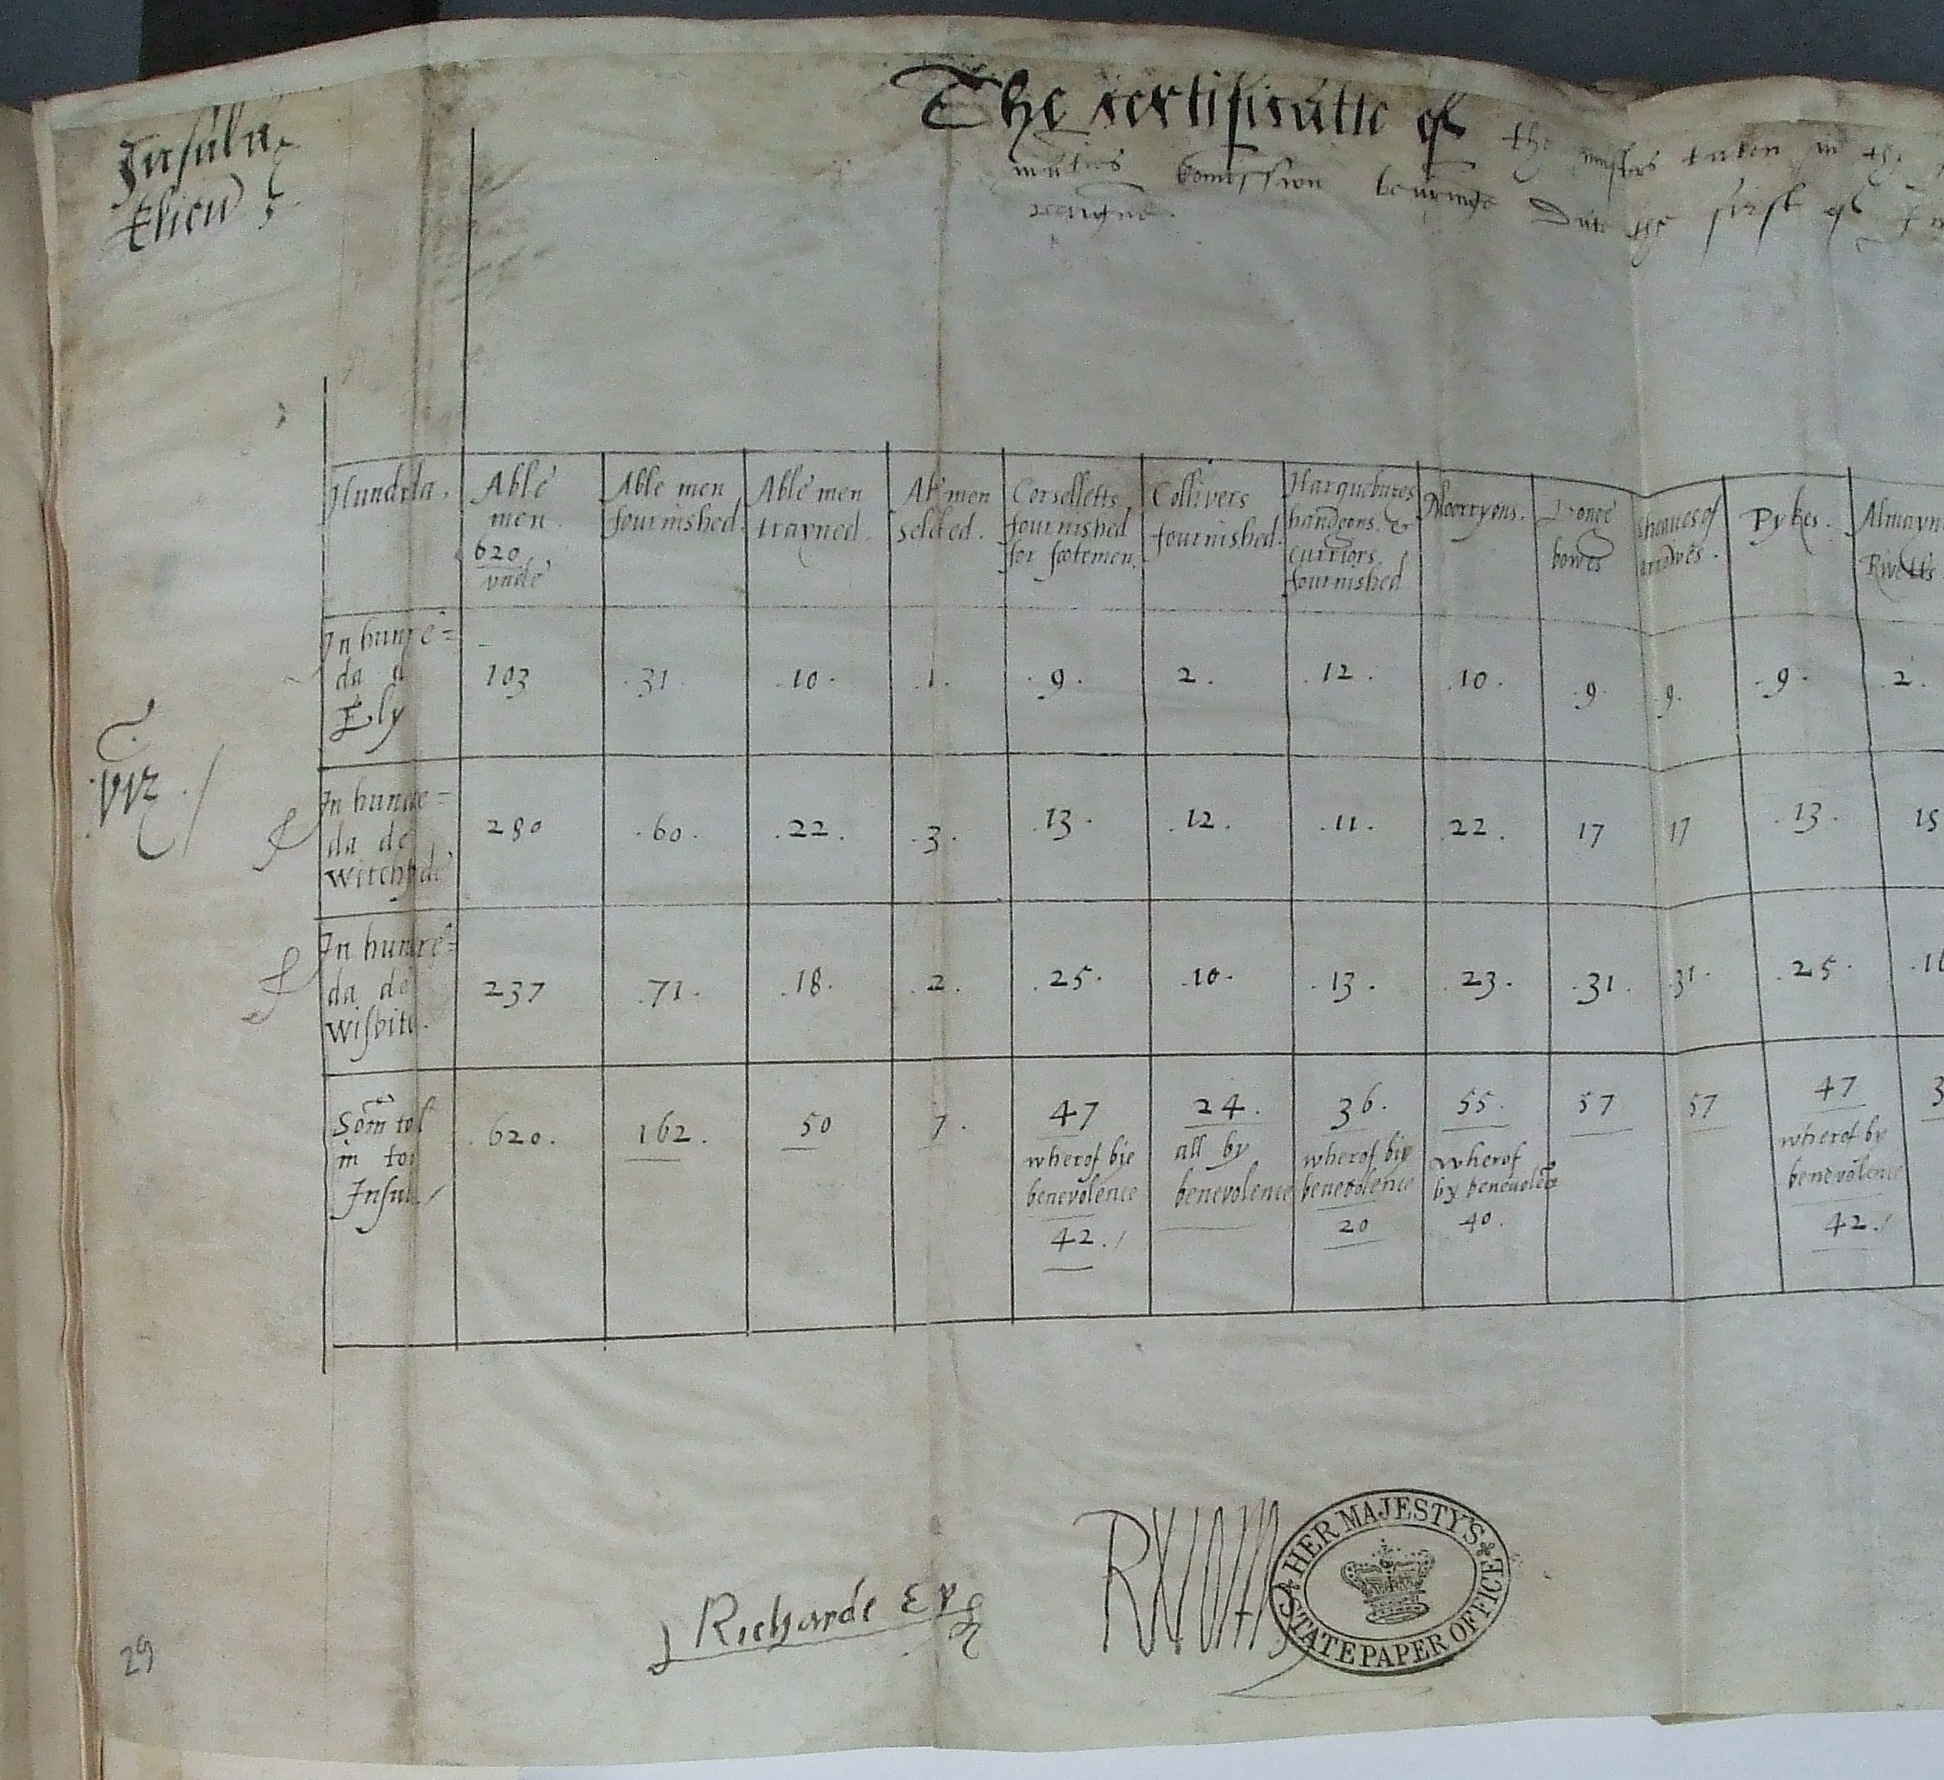 Insula
Eliens
The certificatte of the musters taken in the
maties comission bearinge date the first of
reaigne.
Hundrda. Able men 620 vnde Able men fournished. Able men trayned. Ab men selcted. Corselletts fournished for footemen. Collivers fournished. Harquebutes handgons & curriors fournished Moorryons. Longe bowes sheaues of arrowes. Pykes. Almayn Rivetts
In hunre=
da d
Ely 103 .31. .10. .1. .9. 2. .12. .10. .9. .9. .9. .2.
viz
In hunre=
da de
Witchfrde 280 .60. .22. .3. .13. .12. .11. 22. 17 17 .13. 15
In hunre=
da de
Wisbite. 237 .71. .18. .2. .25. .10. .13. .23. .31. .31. .25.
Som tol
in to
Insul 620. 162. 50 7. 47 wherof bie benevolence 42. 24. all by benevolence 36. wherof bie benevolence 20 55. wherof by benevolece 40. 57 57 47 wherof by benevolence 42.
Richarde Ely
HER MAJESTY'S
STATE PAPER OFFICE
29